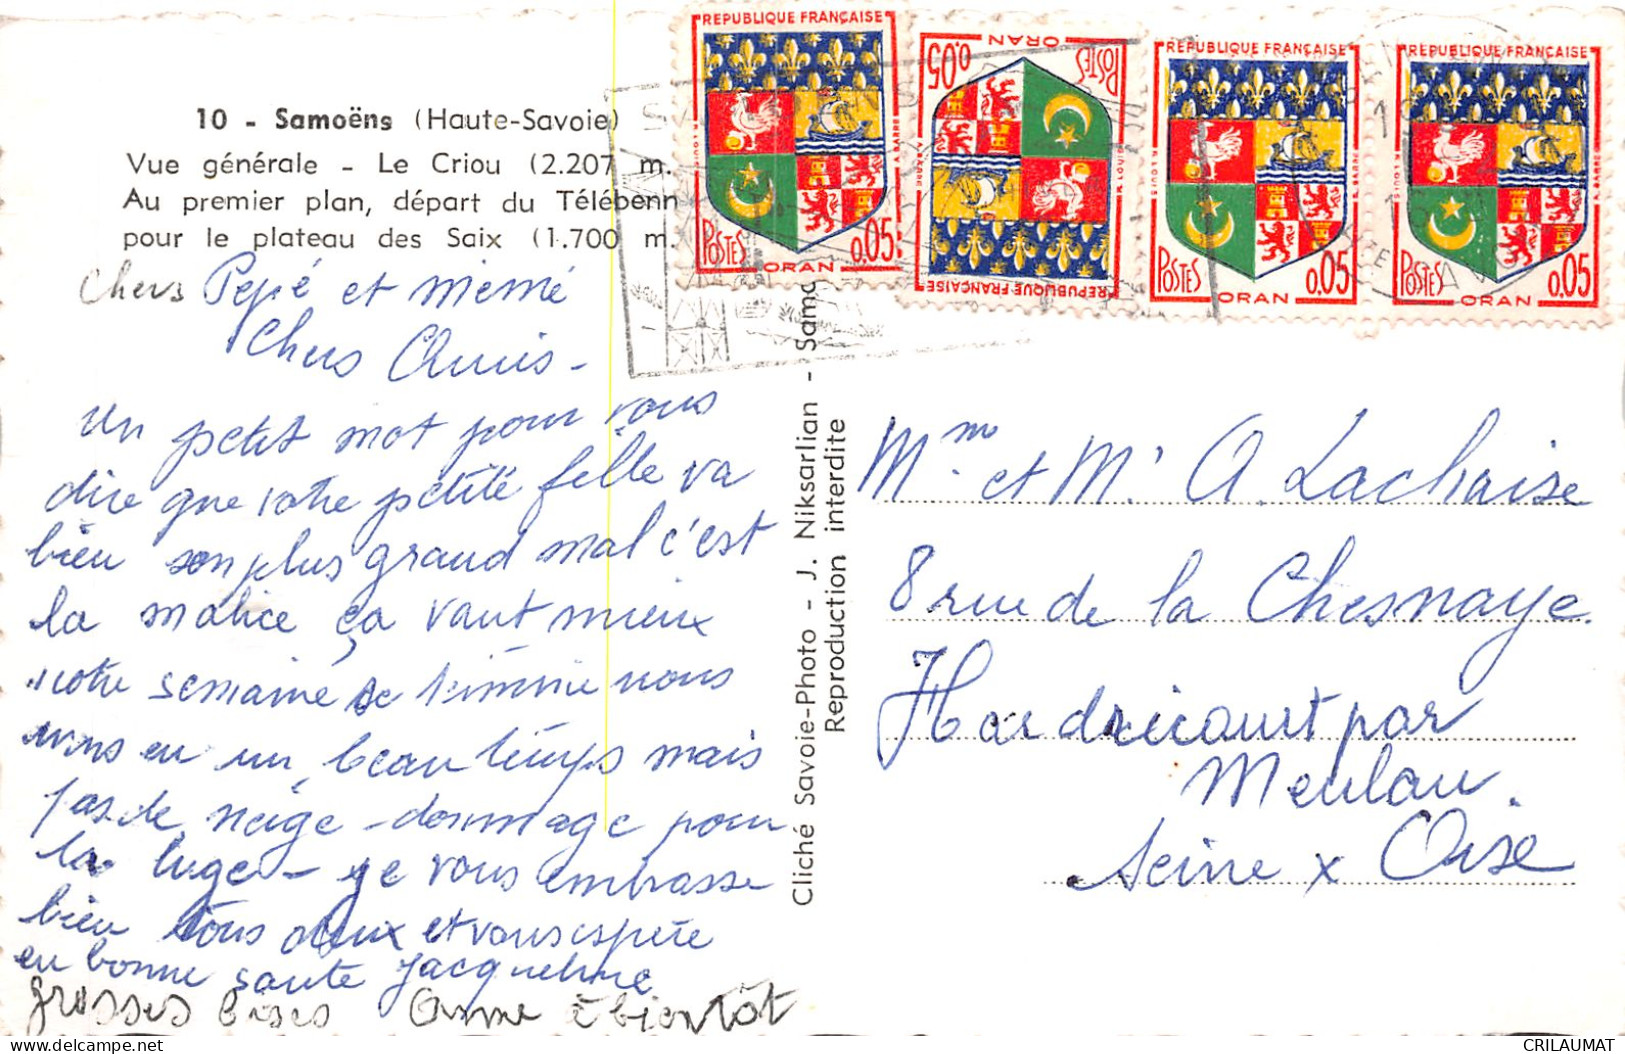 10 - Samoëns (Haute-Savoie)
Vue générale - Le Criou (2.207 m.
Au premier plan, départ du Télébenn
pour le plateau des Saix (1.700 m.
Chers Pépé et mémé
Chers Amis -
Un petit mot pour vous
dire que votre petite fille va
bien son plus grand mal c'est
la malice ça vaut mieux
notre semaine se termine nous
avons eu un beau temps mais
pas de neige - dommage pour
la luge - je vous embrasse
bien tous deux et vous espère
en bonne santé Jacqueline
grosses bises Anne à bientôt
Cliché Savoie-Photo - J. Niksarlian - Samo
Reproduction interdite
REPUBLIQUE FRANÇAISE
POSTES
0,05
ORAN
REPUBLIQUE FRANÇAISE
POSTES
0,05
ORAN
REPUBLIQUE FRANÇAISE
POSTES
0,05
ORAN
REPUBLIQUE FRANÇAISE
POSTES
0,05
ORAN
Mme et Mr A. Lachaise
8 rue de la Chesnaye.
Hardricourt par
Meulan.
Seine x Oise
CRILAUMAT